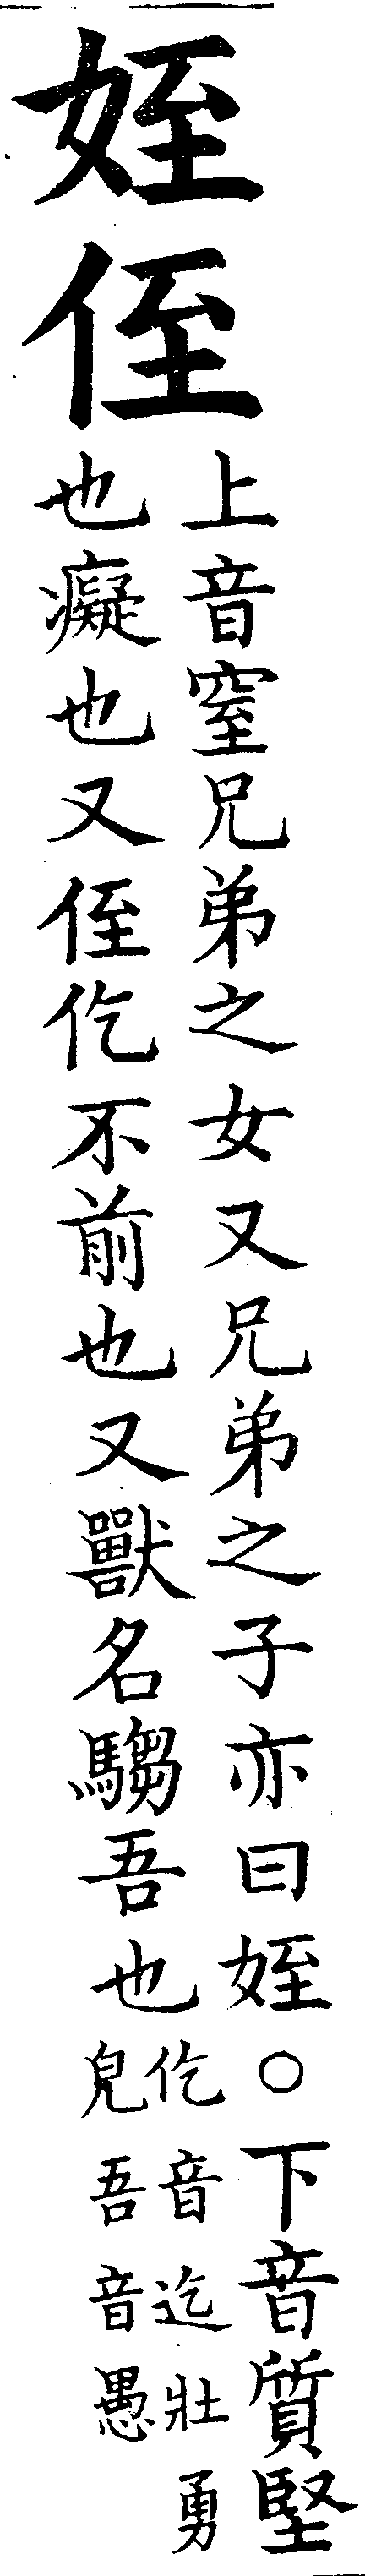 姪侄
上音窒兄弟之女又兄弟之子亦曰姪○下音質堅
也癡也又侄仡不前也又獸名騶吾也
仡音迄壯勇
皃吾音愚